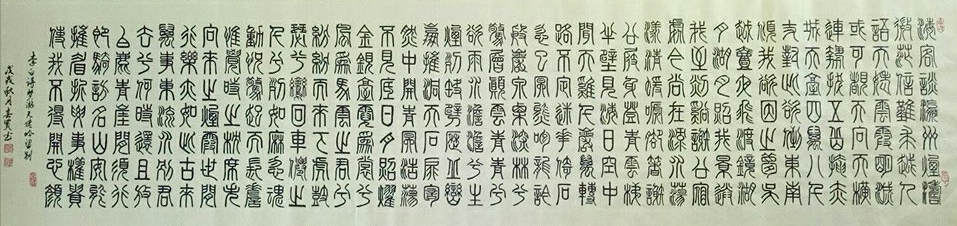 海客談瀛洲煙濤
微茫信難求越人
語天姥雲霞明滅
或可睹天姥連天
向天橫
城天臺四萬八千
丈對此欲倒東南
傾我欲因之夢吳
越一夜飛度鏡湖
月湖月照我影送
我至剡溪謝公宿
處今尚在淥水蕩
漾清猿啼腳著謝
公屐身登青雲梯
半壁見海日空中
聞天雞千巖萬轉
路不定迷花倚石
忽已暝熊咆龍吟
殷巖泉慄深林兮
驚層巔雲青青兮
欲雨水澹澹兮生
煙列缺霹靂丘巒
崩摧洞天石扉訇
然中開青冥浩蕩
不見底日月照耀
金銀臺霓為衣兮
風為馬雲之君兮
紛紛而來下虎鼓
瑟兮鸞回車仙之
人兮列如麻忽魂
動怳驚起而長嗟
惟覺時之枕席失
向來之煙霞世間
行樂亦如此古來
萬事東流水別君
去兮何時還且放
白鹿青崖間須行
即騎訪名山安能
摧眉折腰事權貴
使我不得開心顏
李白詩夢游天姥吟留別
戊戌秋月